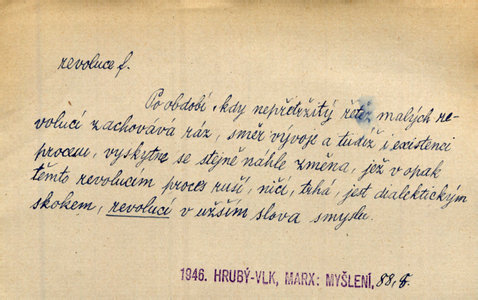 revoluce f.
Po období, kdy nepřetržitý řetěz malých re-
volucí zachovává ráz, směr vývoje a tudíž i existenci
procesu, vyskytne se stejně náhle změna, jež v opak
těmto revolucím proces ruší, ničí, trhá, jest dialektickým
skokem, revolucí v užším slova smyslu.
1946. HRUBÝ-VLK, MARX: MYŠLENÍ, 88,